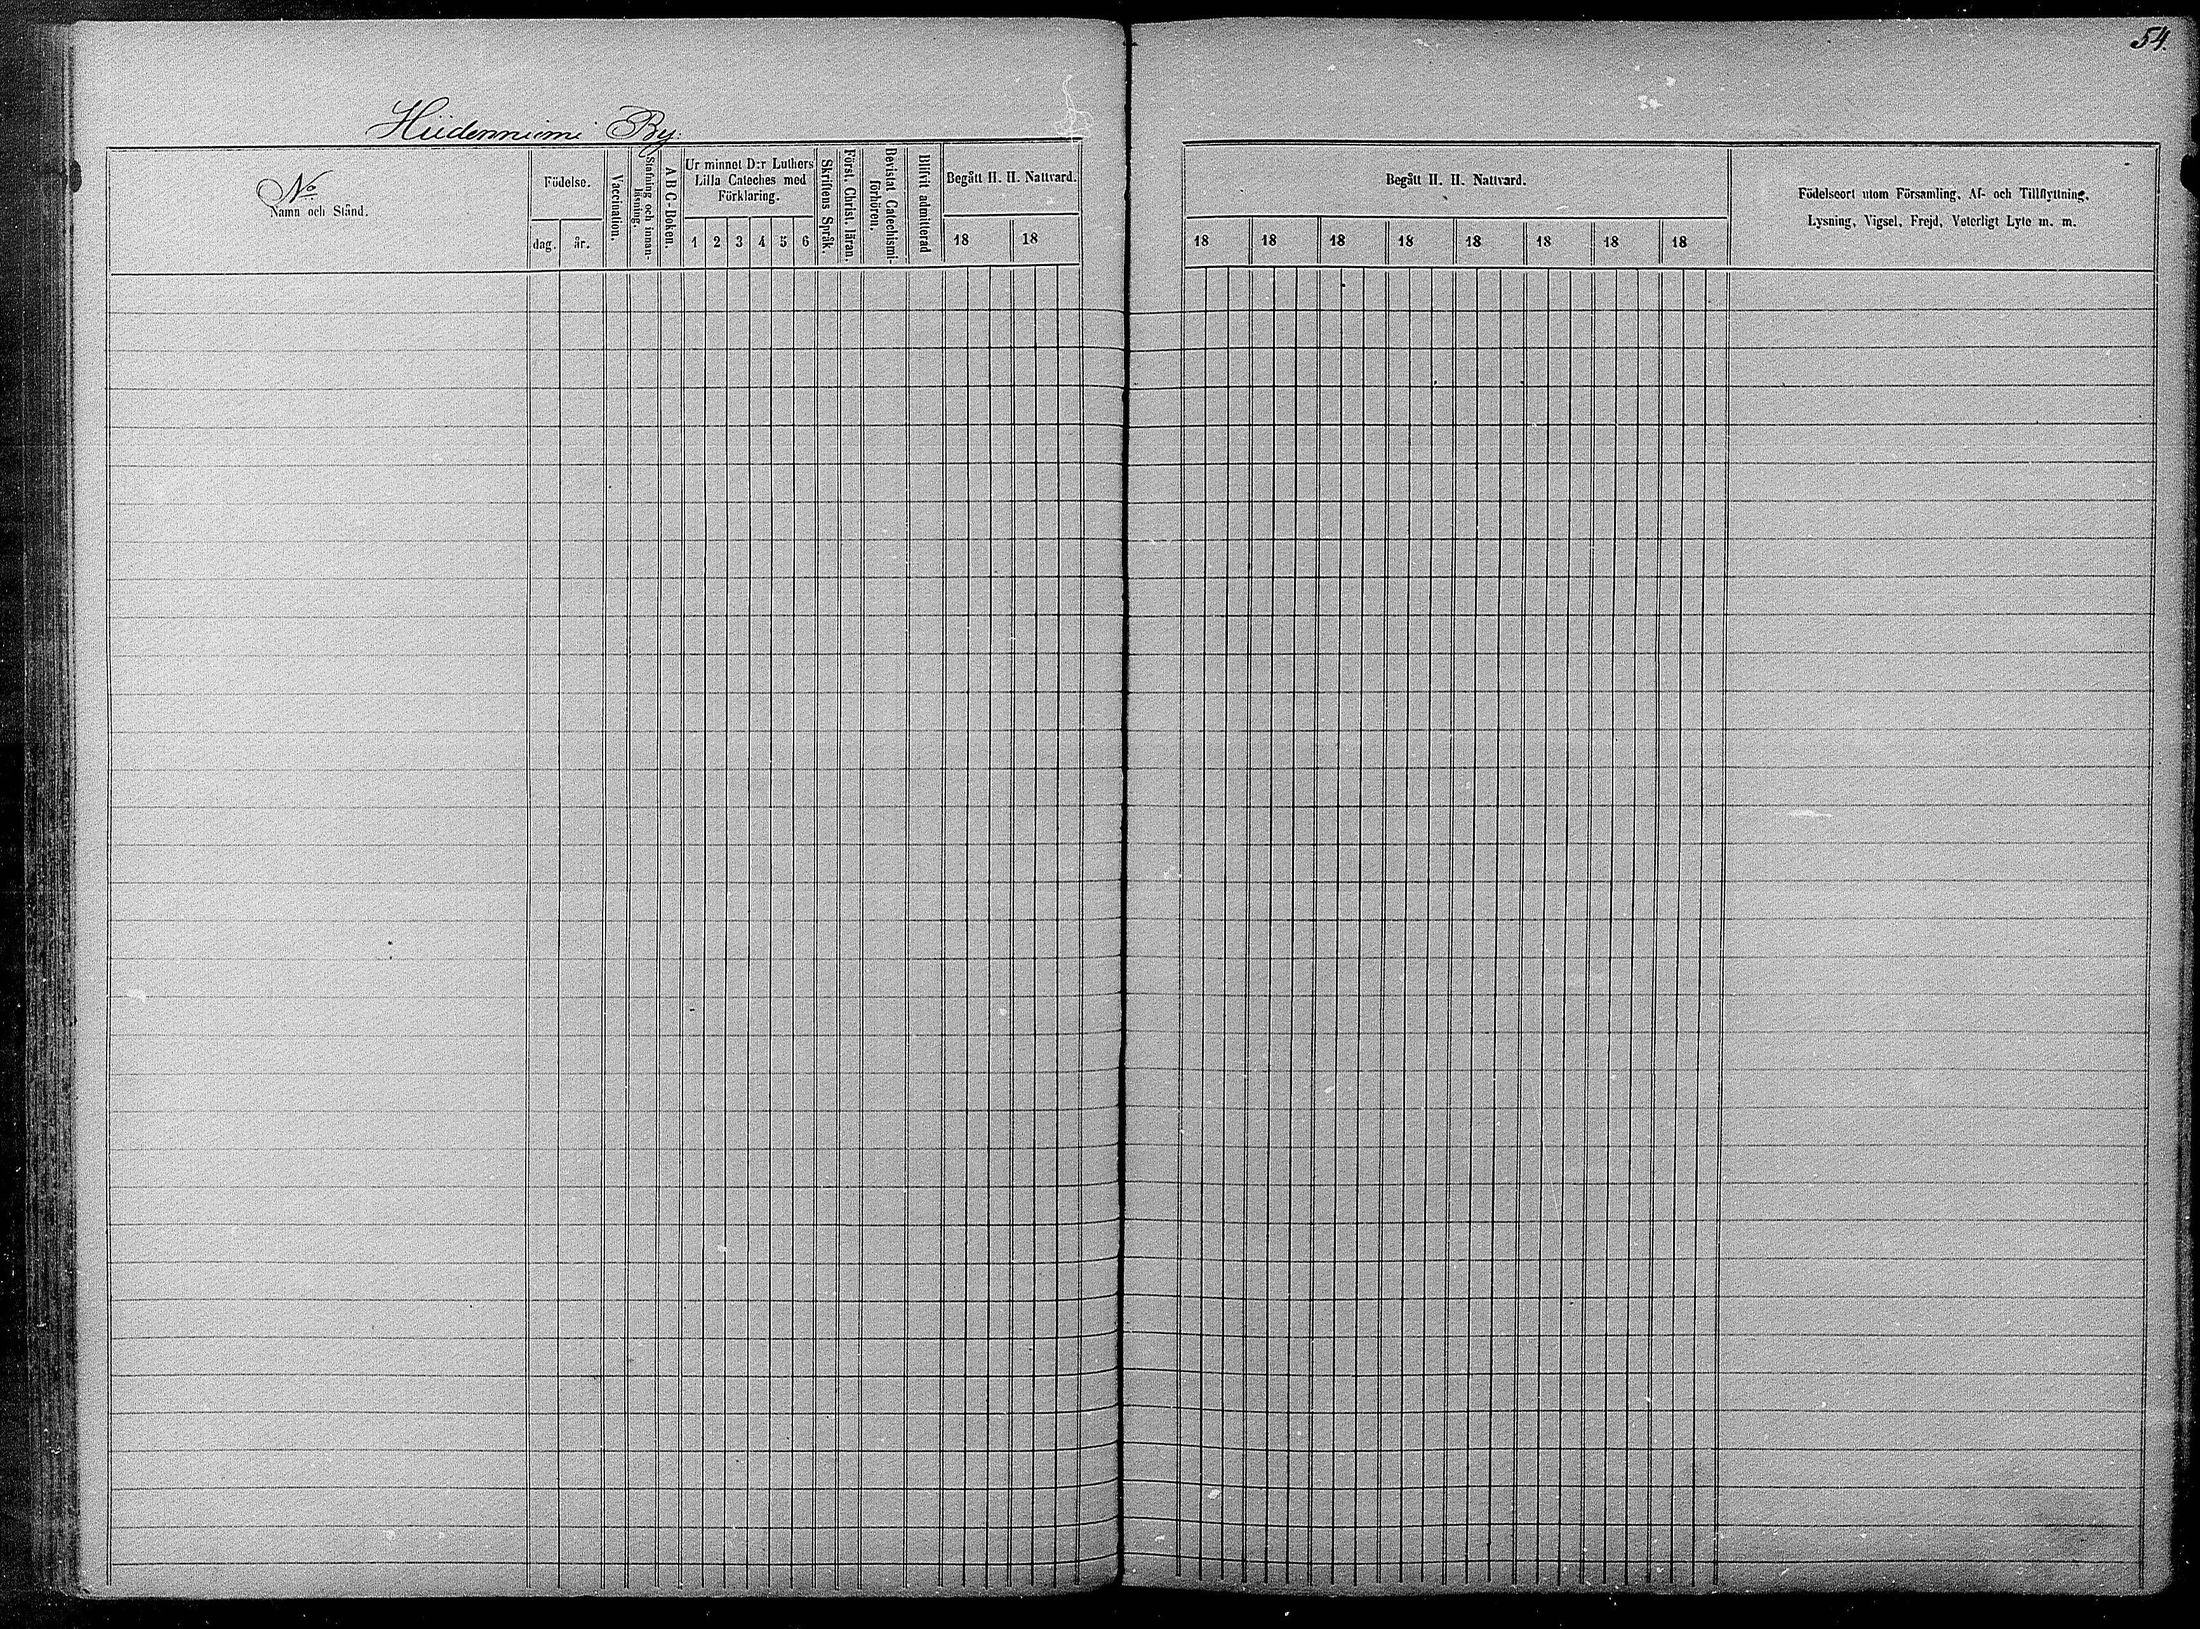 54.
Hiidenniemi By:
No
Namn och Stånd.
Födelse.
dag. år.
Vaccination.
Stafning och innan-
läsning.
A B C-Boken.
Ur minnet D:r Luthers
Lilla Cateches med
Förklaring.
1 2 3 4 5 6
Skriftens Språk.
Först. Christ. läran.
Bevistat Catechismi-
förhören.
Blifvit admitterad
Begått H. H. Nattvard.
18 18
Begått H. H. Nattvard.
18 18 18 18 18 18 18 18
Födelseort utom Församling, Af- och Tillflyttning,
Lysning, Vigsel, Frejd, Veterligt Lyte m. m.